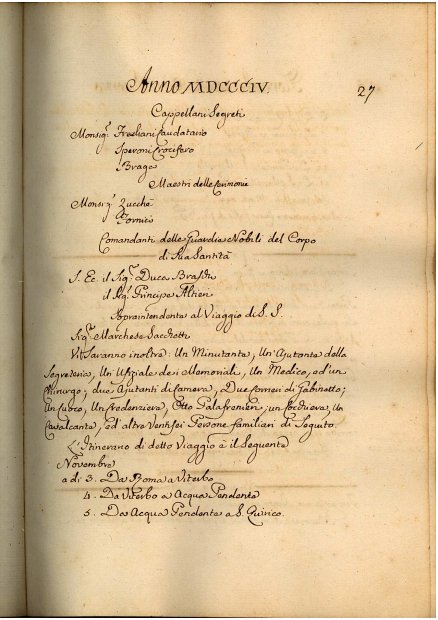 Anno MDCCCIV.
27
Cappellani Segreti
Monsig.r Frediani Caudatario
Speroni Crocifero
Braga
Maestri delle Cerimonie
Monsig.r Zucchè
Fornici
Comandanti delle Guardie Nobili del Corpo
di Sua Santità
S. Ec. il Sig.r Duca Braschi
il Sig.r Principe Altieri
Sopraintendente al Viaggio di S. S.
Sig.r Marchese Sacchetti
Vi Saranno inoltre: Un Minutante, Un Ajutante della
Segreteria, Un Ufiziale dei Memoriali, Un Medico, ed un
Chirurgo; due Ajutanti di Camera, Due Corrieri di Gabinetto;
Un Cuoco, Un Credenziere, Otto Palafrenieri, un
Cavalcante, ed altre Ventisei Persone familiari di Seguito.
L'Itinerario di detto Viaggio è il Seguente
Novembre
a di 3. Da Roma a Viterbo
4. Da Viterbo a Acqua Pendente
5. Da Acqua Pendente a S. Quirico.